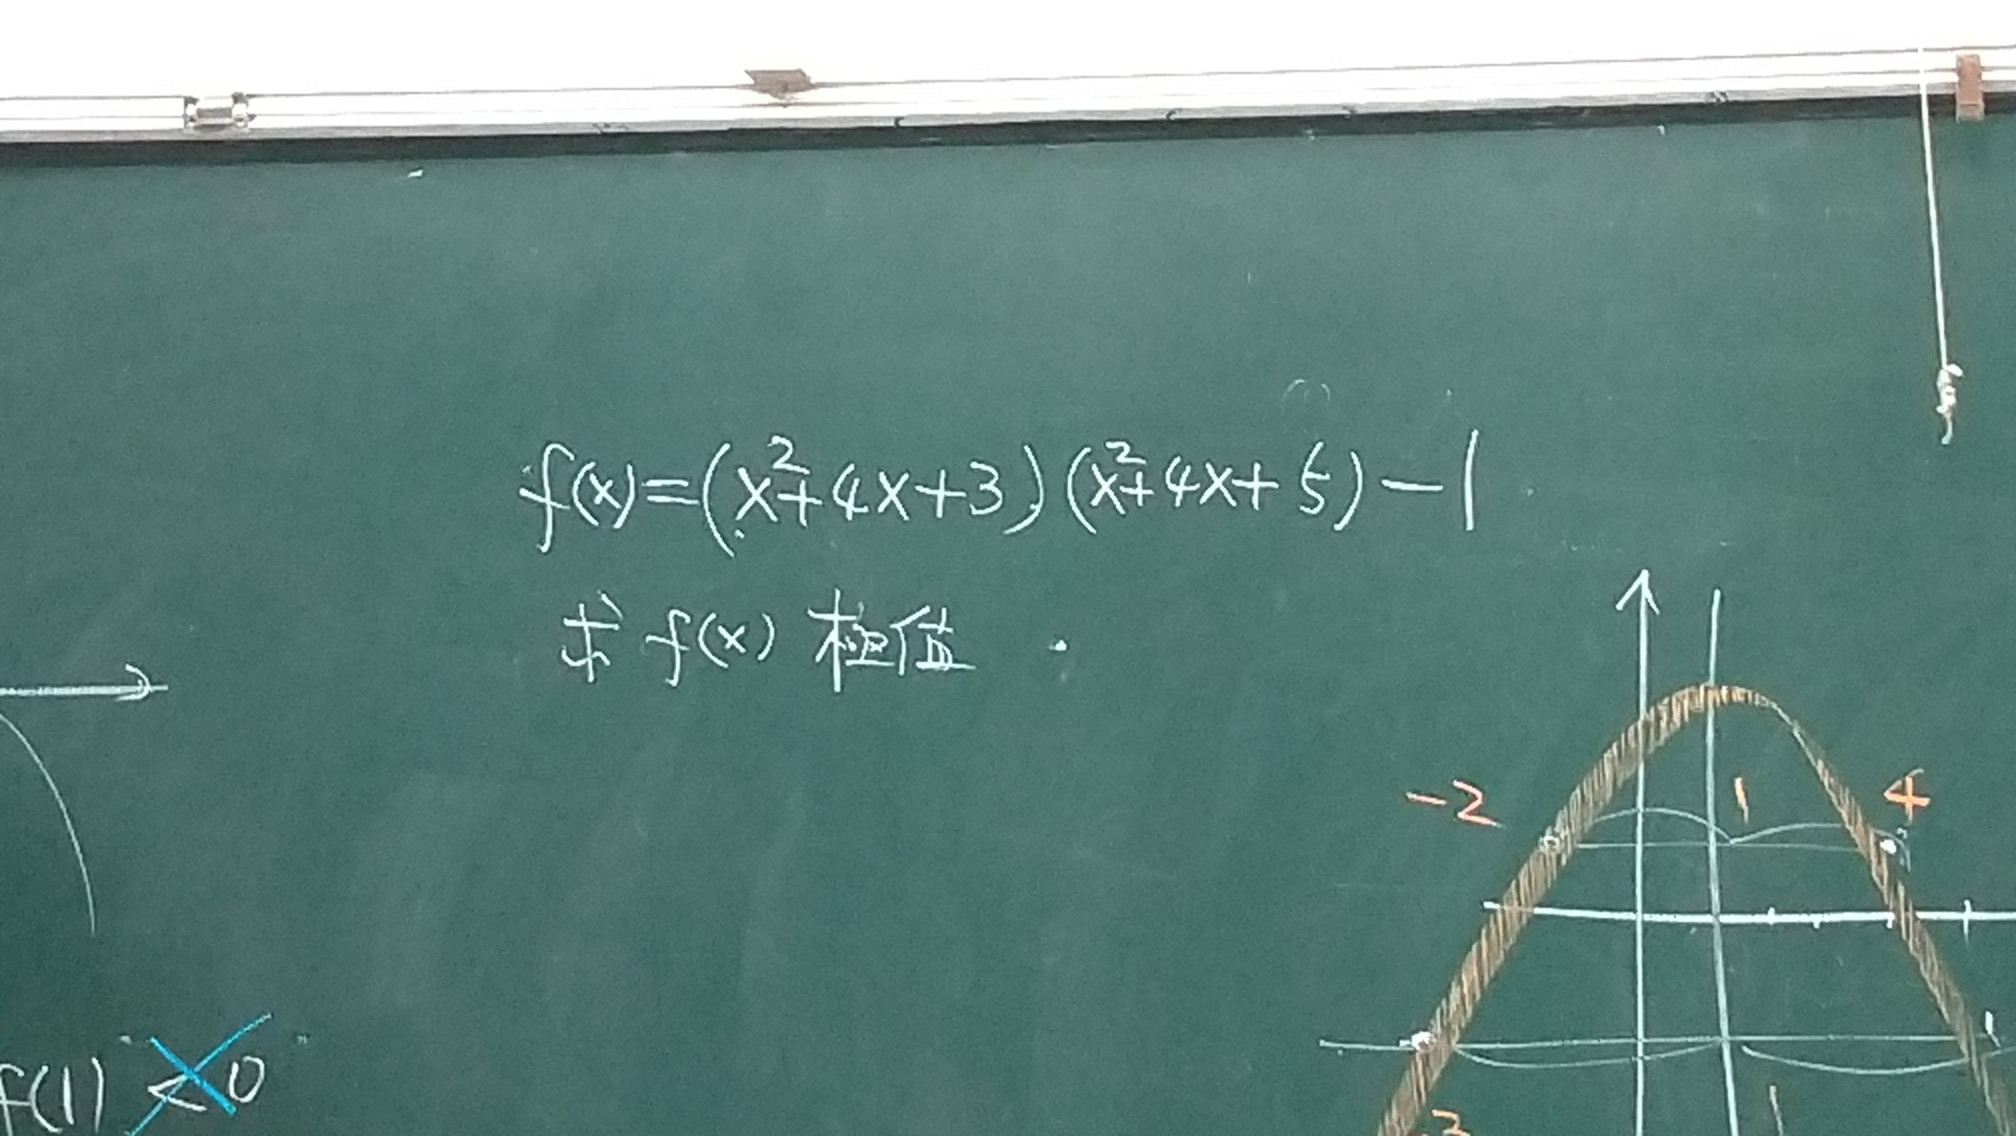 f(x)=(x²+4x+3)(x²+4x+5)-1
求 f(x) 極值.
-2 1 4
f(1) <0
-3